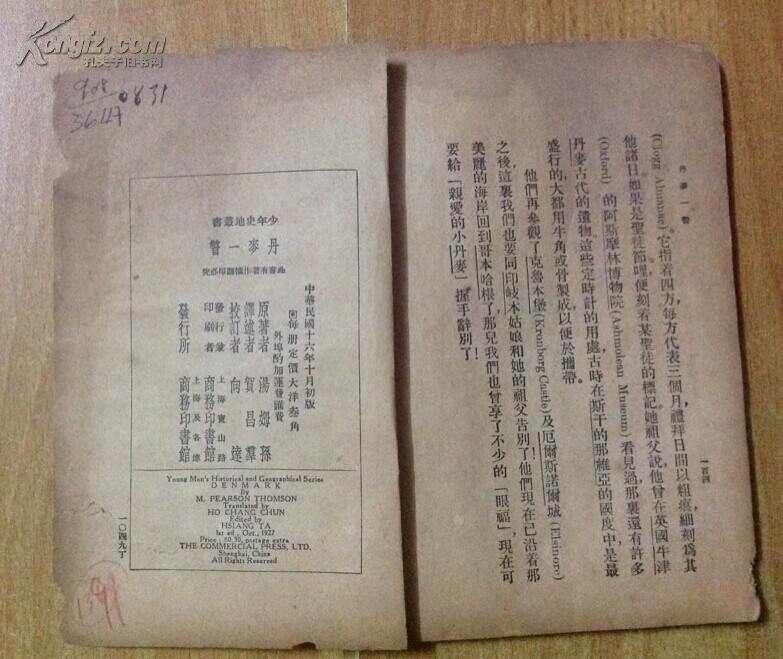 Kongfz.com
孔夫子旧书网
丹麥一瞥
一百四
(Clogg Almanac)。它指着四方,每方代表三個月,禮拜日間以粗痕,細刻爲其
他諸日。如果是聖徒節哩,便刻着某聖徒的標記。她祖父說,他曾在英國牛津
(Oxford)的阿斯摩林博物院(Ashmolean Museum)看見過,那裏還有許多
丹麥古代的遺物。這些定時計的用處,古時在斯干的那維亞的國度中,是最
盛行的,大都用牛角或骨製成,以便於攜帶。
他們再參觀了克魯本堡(Kronborg Castle)及厄爾斯諾爾城(Elsinore)
之後,這裏我們也要同印岐本姑娘和她的祖父告別了!他們現在已沿着那
美麗的海岸回到哥本哈根了,那兒我們也曾享了不少的「眼福」,現在可
要給「親愛的小丹麥」握手辭別了!
908
3647
0831
少年史地叢書
丹麥一瞥
此書有著作權翻印必究
中華民國十六年十月初版
每册定價大洋叁角
外埠酌加運費匯費
原著者 湯姆孫
譯述者 賀昌羣
校訂者 向達
發行兼印刷者 上海寶山路 商務印書館
發行所 上海及各埠 商務印書館
Young Men's Historical and Geographical Series
DENMARK
By
M. PEARSON THOMSON
Translated by
HO CHANG CHUN
Edited by
HSIANG TA
1st ed., Oct., 1927
Price: $0.30, postage extra
THE COMMERCIAL PRESS, LTD.
Shanghai, China
All Rights Reserved
一〇四九丁